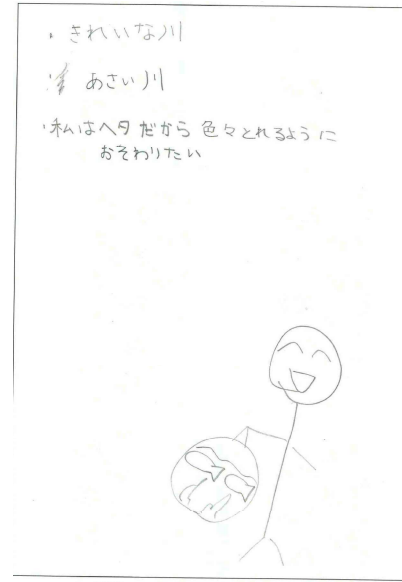 ・きれいな川
・あさい川
・私はヘタだから 色々とれるように
おそわりたい